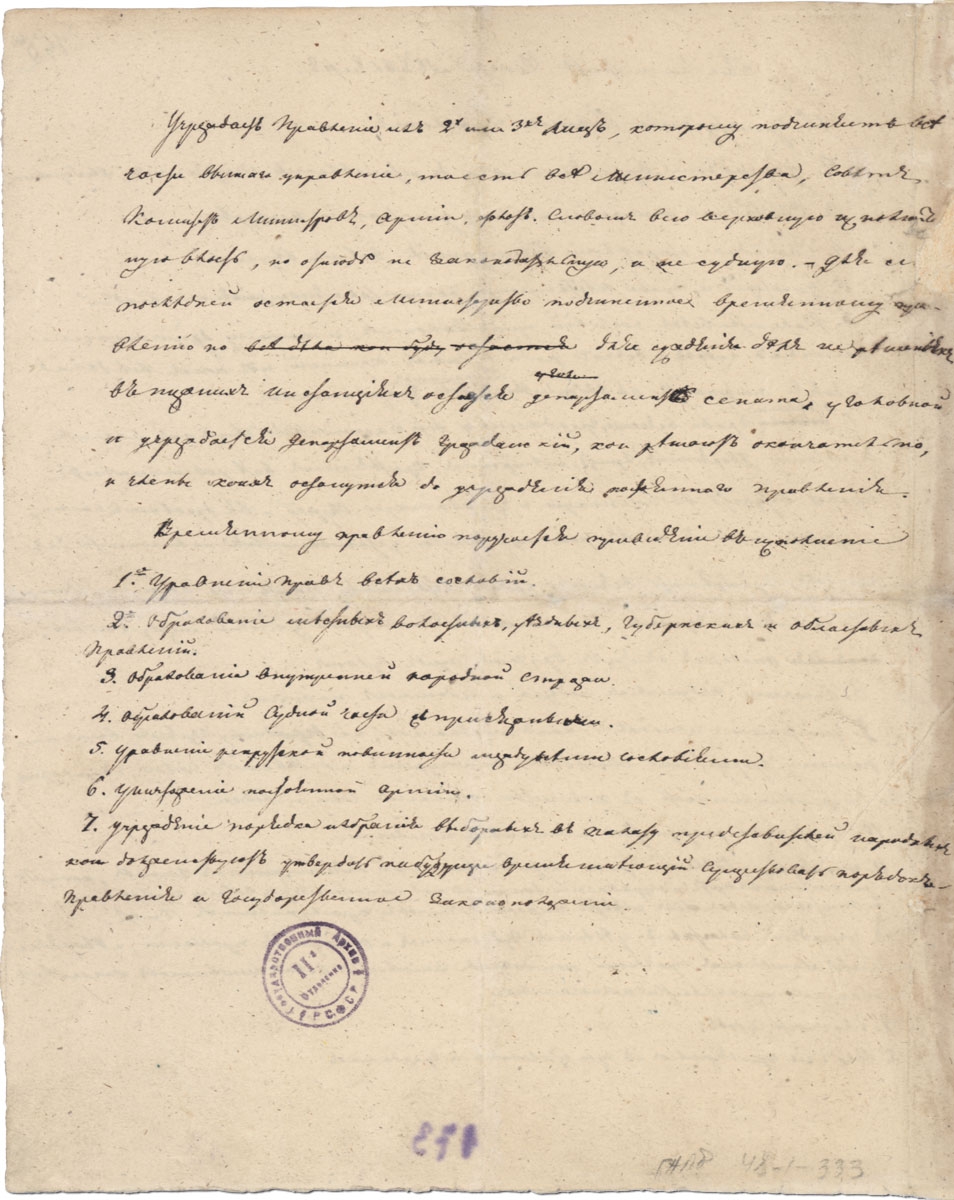 Учреждаетъ Правленіе изъ 2х или 3хъ Лицъ, которому подчиняетъ всѣ
части высшаго управленія, то есть всѣ Министерства, Совѣтъ,
Комитетъ Министровъ, Арміи, флотъ. Словомъ всю верховную исполнитель
ную власть, но отнюдь не законодательную, и не судную. – Для сей
послѣдней остается Министерство подчиненное временному пра-
вленію но всѣ дѣла кои будутъ оставаться для сужденія дѣлъ не рѣшенныхъ
въ нижнихъ инстанціяхъ остается департаментъ сената уголовной
и учреждается департаментъ гражданскій, кои рѣшаютъ окончательно,
и члены коихъ останутся до учрежденія постояннаго правленія.
Временному правленію поручается приведеніе въ исполненіе
1е. Уравненіе правъ всѣхъ сословій.
2е. Образованіе мѣстныхъ Волостныхъ, уѣздныхъ, Губернскихъ и Областныхъ
Правленій.
3. Образованіе Внутренней народной стражи.
4. Образованіе Судной части с присяжными.
5. Уравненіе рекрутской повинности между сословіями.
6. Уничтоженіе постоянной Арміи.
7. Учрежденіе порядка избранія выборныхъ въ палату представителей народныхъ
кои долженствуютъ утвердить на будущее время имѣющій Существовать порядокъ
Правленія и Государственное Законоположеніе.
Государственный Архив Р.С.Ф.С.Р.
IIе
Отделение
48-1-333